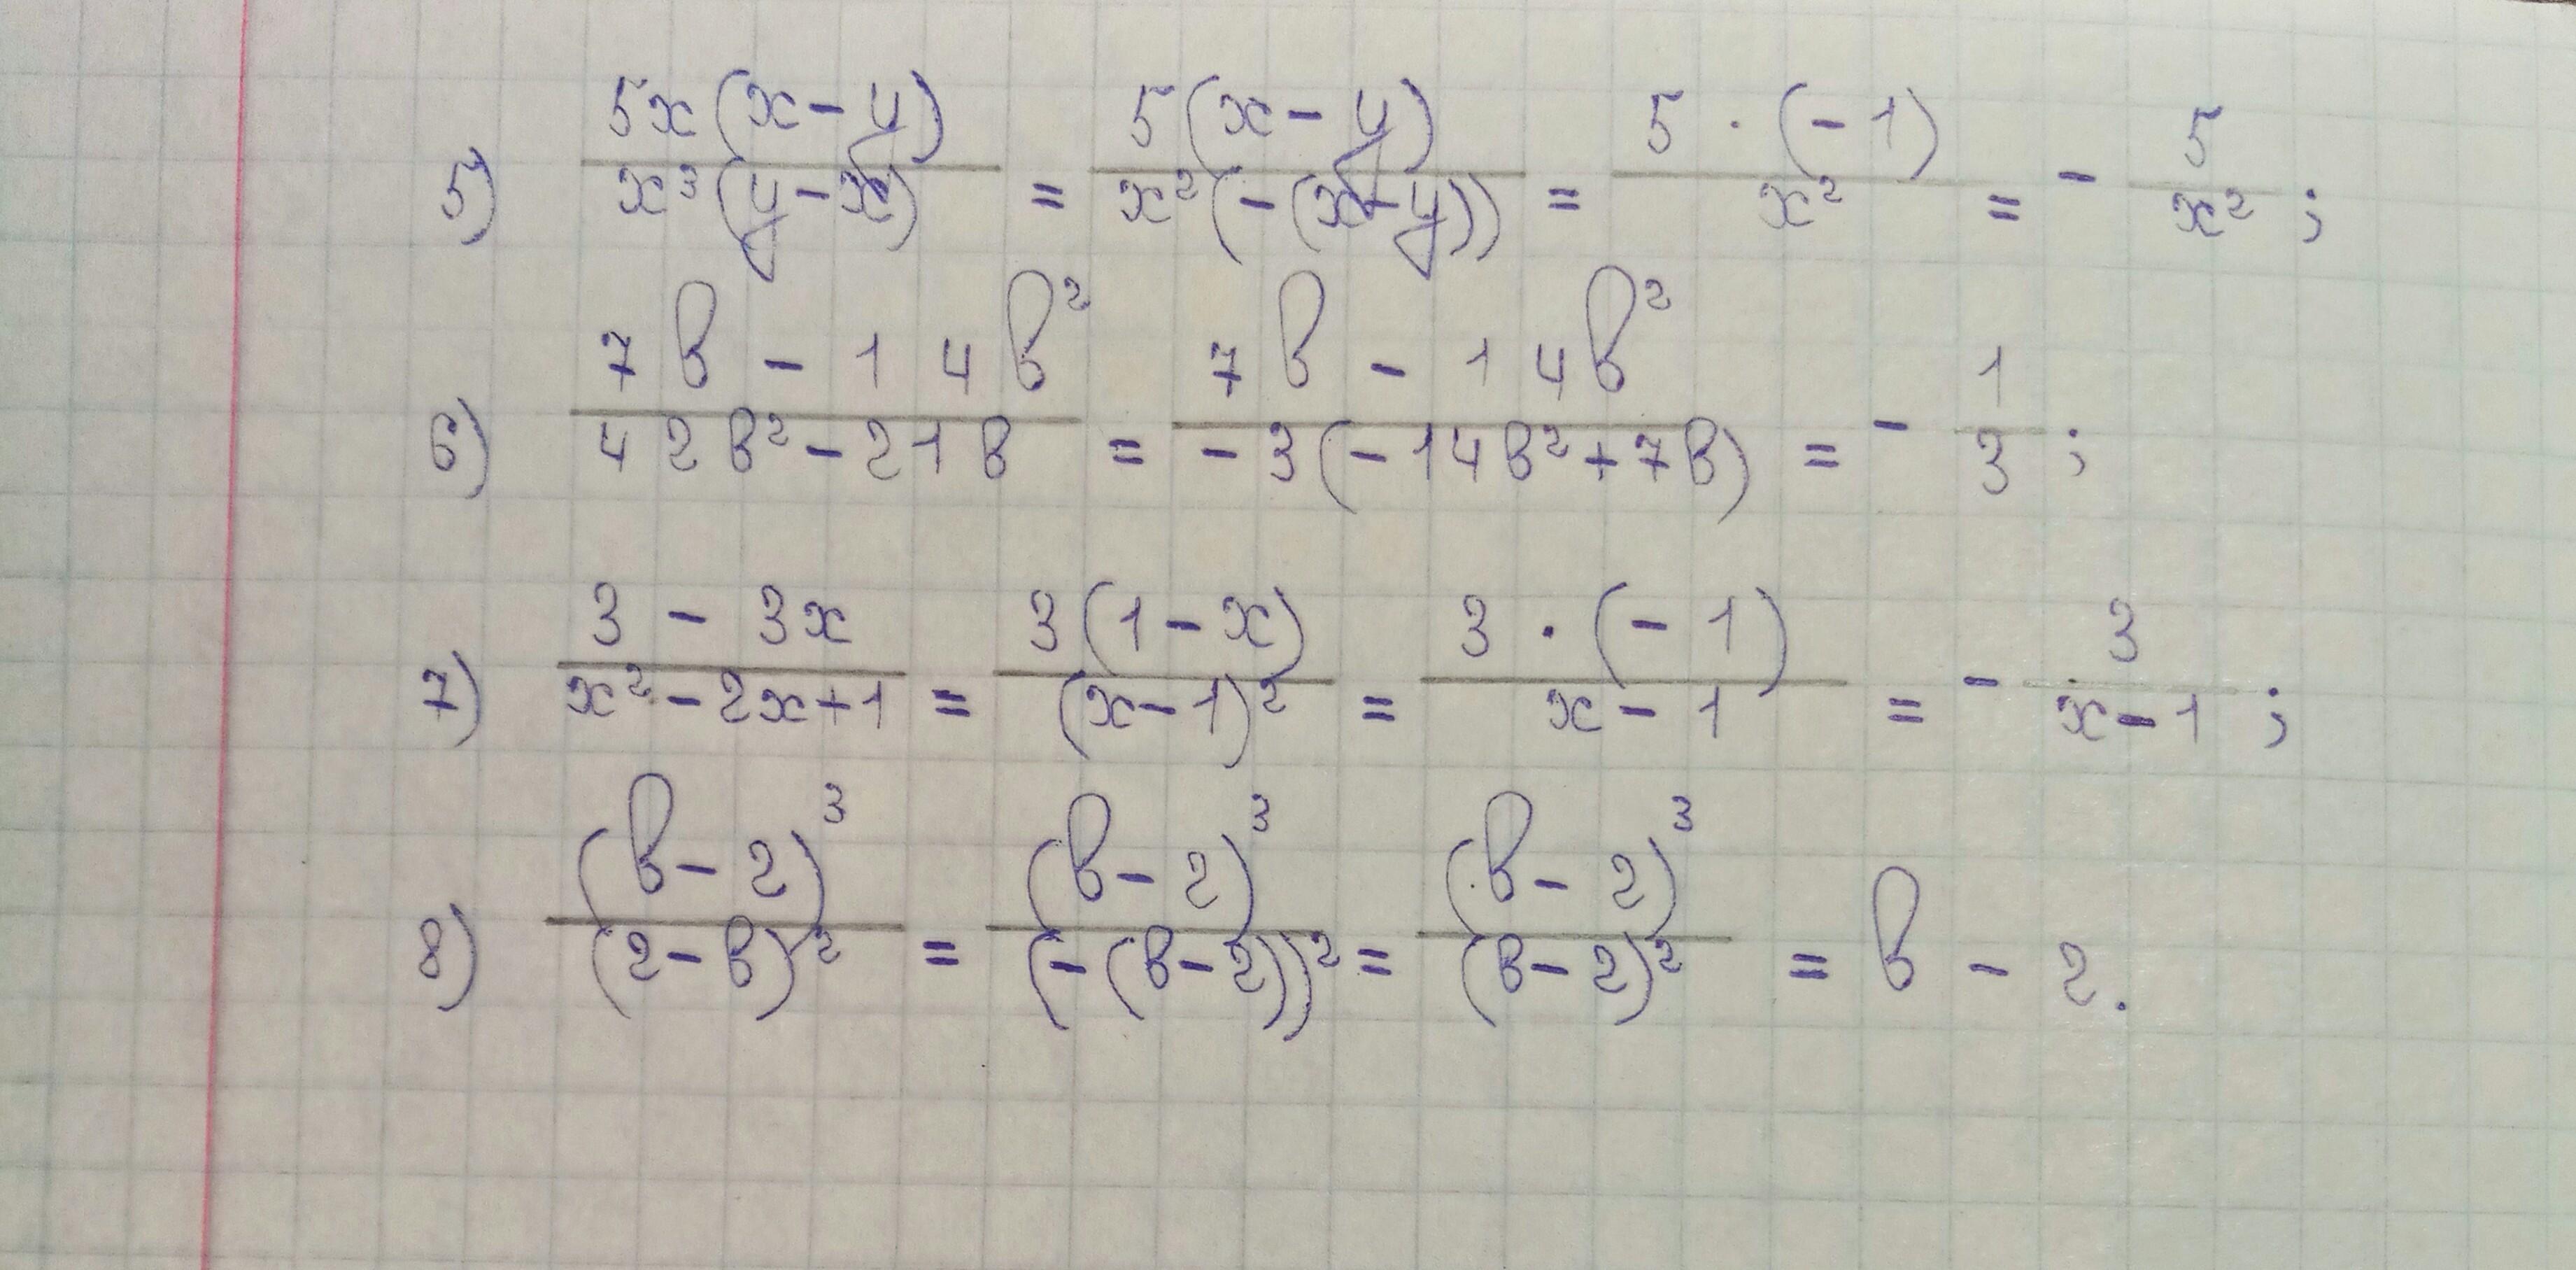 5) \frac{5x(x-y)}{x^3(y-x)} = \frac{5(x-y)}{x^2(-(x-y))} = \frac{5 \cdot (-1)}{x^2} = -\frac{5}{x^2};
6) \frac{7b-14b^2}{42b^2-21b} = \frac{7b-14b^2}{-3(-14b^2+7b)} = -\frac{1}{3};
7) \frac{3-3x}{x^2-2x+1} = \frac{3(1-x)}{(x-1)^2} = \frac{3 \cdot (-1)}{x-1} = -\frac{3}{x-1};
8) \frac{(b-2)^3}{(2-b)^2} = \frac{(b-2)^3}{(-(b-2))^2} = \frac{(b-2)^3}{(b-2)^2} = b-2.